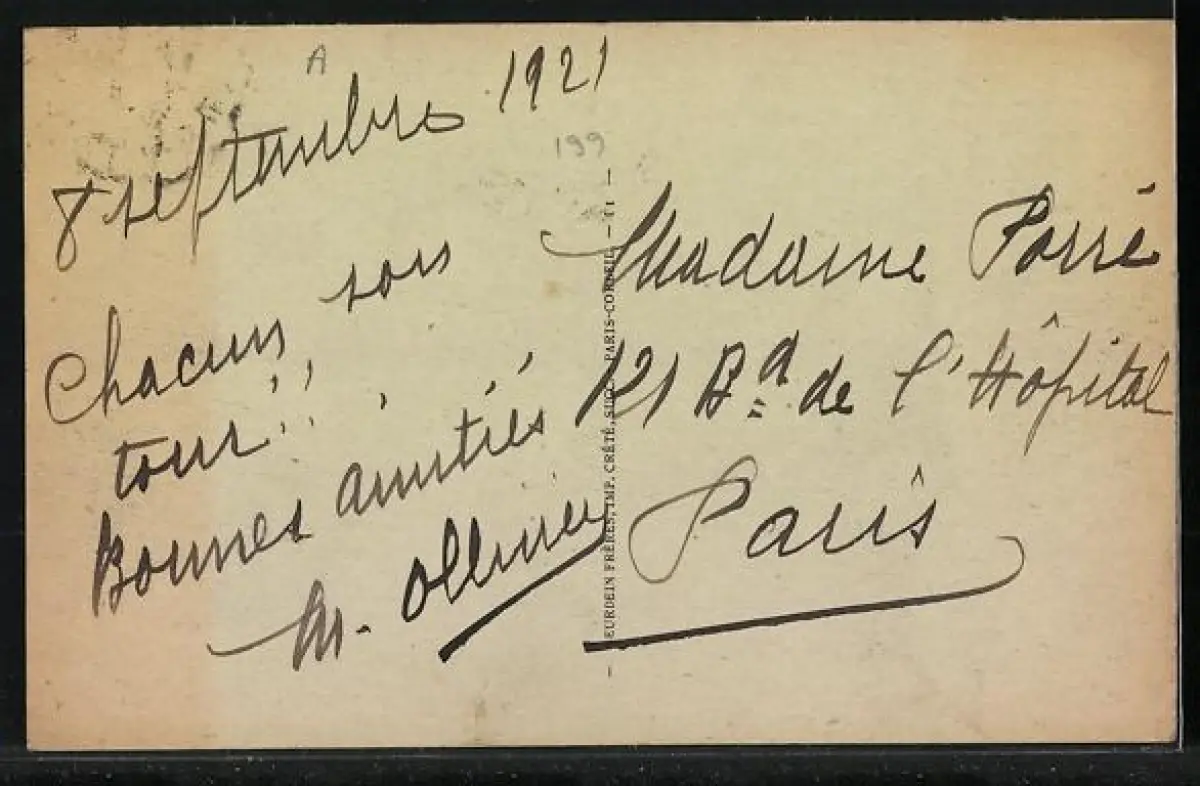 A
8 septembre 1921
199
Chacun son
tour!!!
Bonnes amitiés
M. Ollivier
Madame Porré
121 Bd de l'Hôpital
Paris
FRÈRES, IMP. CRÉTÉ, SUCC. PARIS-CORBEIL